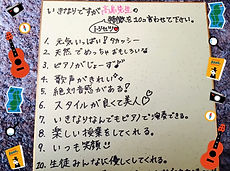 いきなりですが高島先生の
特徴を10コ言わせて下さい。
1. 元気いっぱい!タカッシー
2. 天然でめっちゃおもしろいる
3. ピアノがじょーすﾞ
4. 歌声がきれい
5. 絶対音感がある!
6. スタイルが良くて美人♡
7. いきなりなんでもピアノで演奏できる。
8. 楽しい授業をしてくれる。
9. いつも笑顔
10. 生徒みんなに優しくしてくれる。